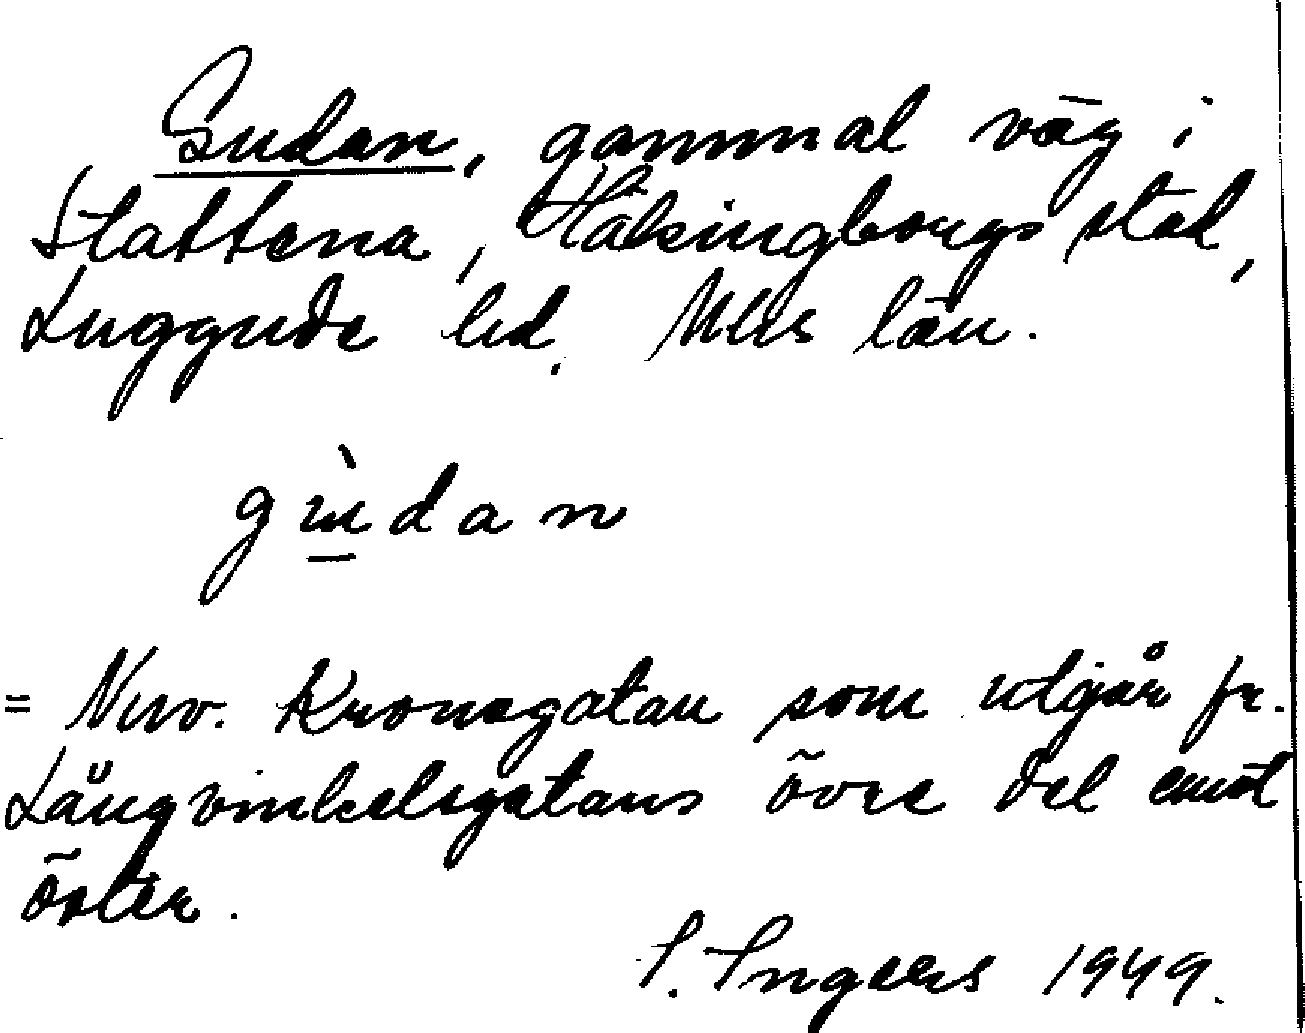 Gudan, gammal väg i
Stattena, Hälsingborgs stad,
Luggude hd. Mlhs län.
gùdan
= Nuv. Kronogatan som utgår fr.
Långvinkelsgatans övre del emot
öster.
I. Ingers 1949.